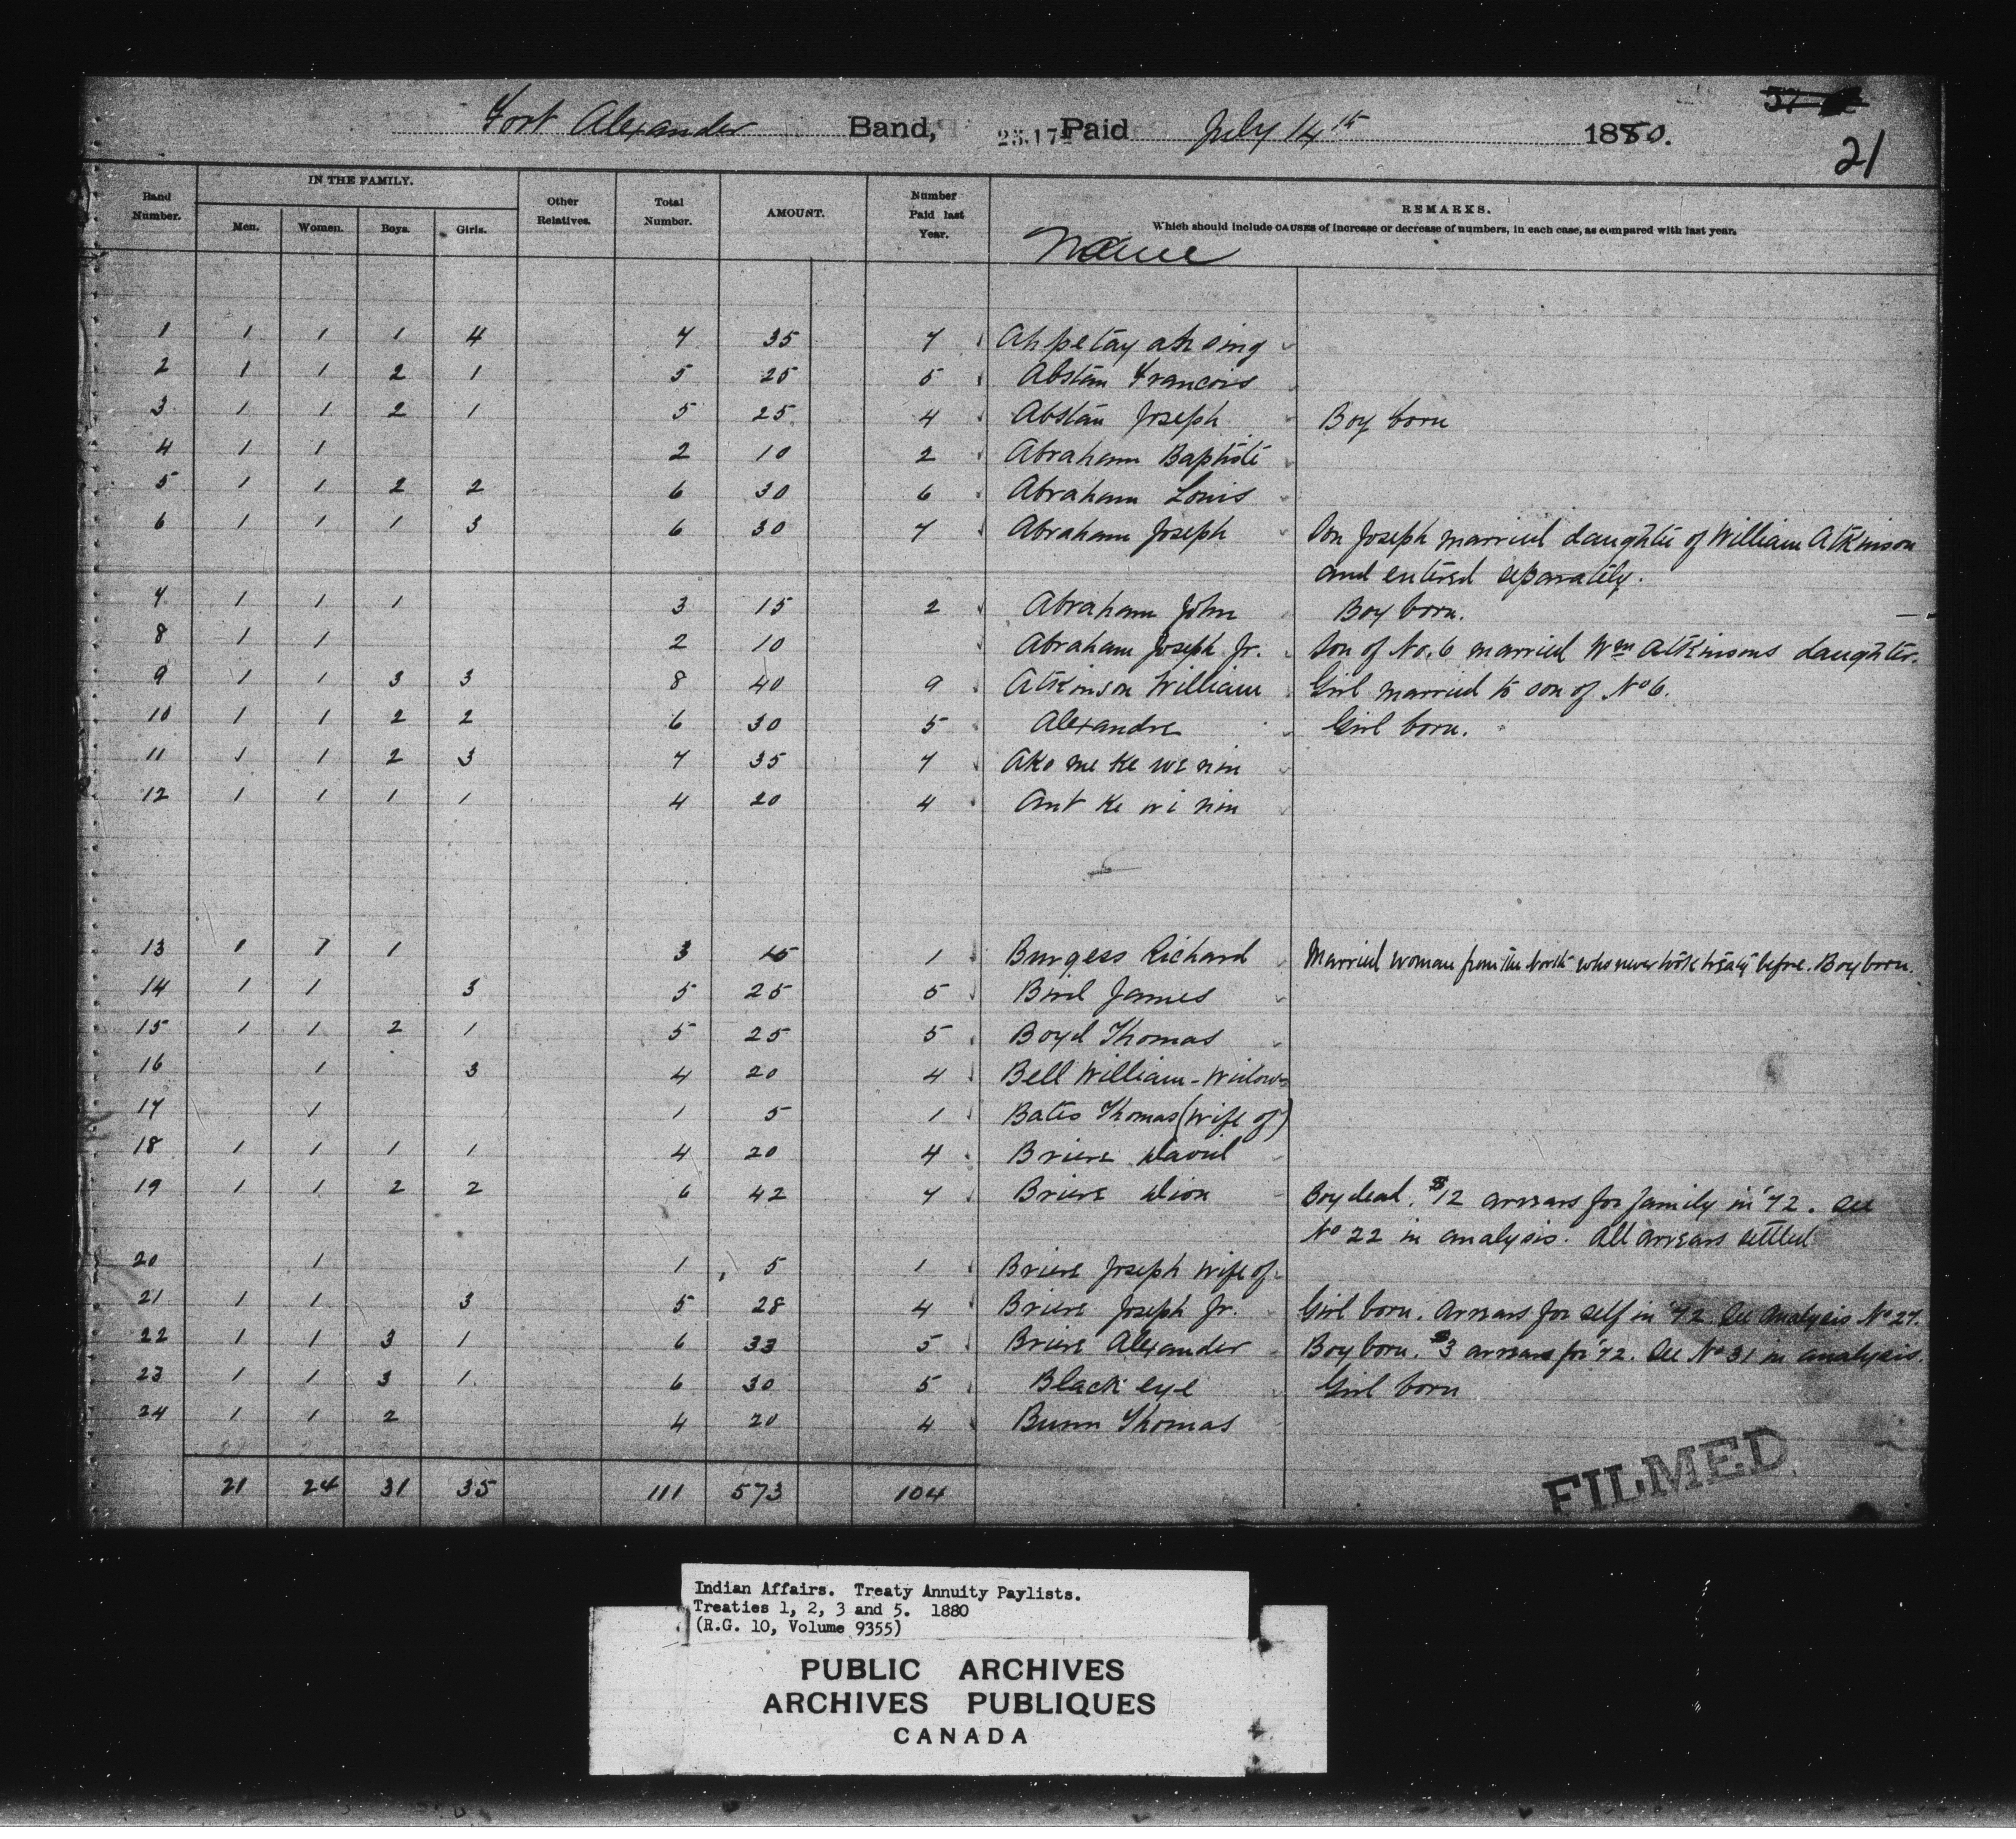 Fort Alexander Band, 25.17 Paid July 14th 1880.
21
Band Number. IN THE FAMILY. Men. Women. Boys. Girls. Other Relatives. Total Number. AMOUNT. Number Paid last Year. REMARKS.
Which should include CAUSES of increase or decrease of numbers, in each case, as compared with last year.
Name
1 1 1 1 4 7 35 7 Ah pe tay ah sing
2 1 1 2 1 5 25 5 Abstan Francois
3 1 1 2 1 5 25 4 Abstan Joseph Boy born
4 1 1 2 10 2 Abraham Baptiste
5 1 1 2 2 6 30 6 Abraham Louis
6 1 1 1 3 6 30 7 Abraham Joseph Son Joseph married daughter of William Atkinson
and entered separately.
7 1 1 1 3 15 2 Abraham John Boy born.
8 1 1 2 10 Abraham Joseph Jr. Son of No. 6 married Wm Atkinsons daughter.
9 1 1 3 3 8 40 9 Atkinson William Girl married to son of No 6.
10 1 1 2 2 6 30 5 Alexandre Girl born.
11 1 1 2 3 7 35 7 Ako me ke we nin
12 1 1 1 1 4 20 4 Ant ke wi nin
13 1 1 1 3 15 1 Burgess Richard Married woman from the north who never took treaty before. Boy born.
14 1 1 3 5 25 5 Bird James
15 1 1 2 1 5 25 5 Boyd Thomas
16 1 3 4 20 4 Bell William - Widow
17 1 1 5 1 Bates Thomas (wife of)
18 1 1 1 1 4 20 4 Briere David
19 1 1 2 2 6 42 7 Briere Dion Boy dead. $12 arrears for family in '72. See
No 22 in analysis. All arrears settled
20 1 1 5 1 Briere Joseph wife of
21 1 1 3 5 28 4 Briere Joseph Jr. Girl born. Arrears for self in '72. See Analysis No 27.
22 1 1 3 1 6 33 5 Briere Alexander Boy born. $3 arrears for '72. See No 31 in analysis.
23 1 1 3 1 6 30 5 Black eye Girl born
24 1 1 2 4 20 4 Bunn Thomas
21 24 31 35 111 573 104
FILMED
Indian Affairs. Treaty Annuity Paylists.
Treaties 1, 2, 3 and 5. 1880
(R.G. 10, Volume 9355)
PUBLIC ARCHIVES
ARCHIVES PUBLIQUES
CANADA